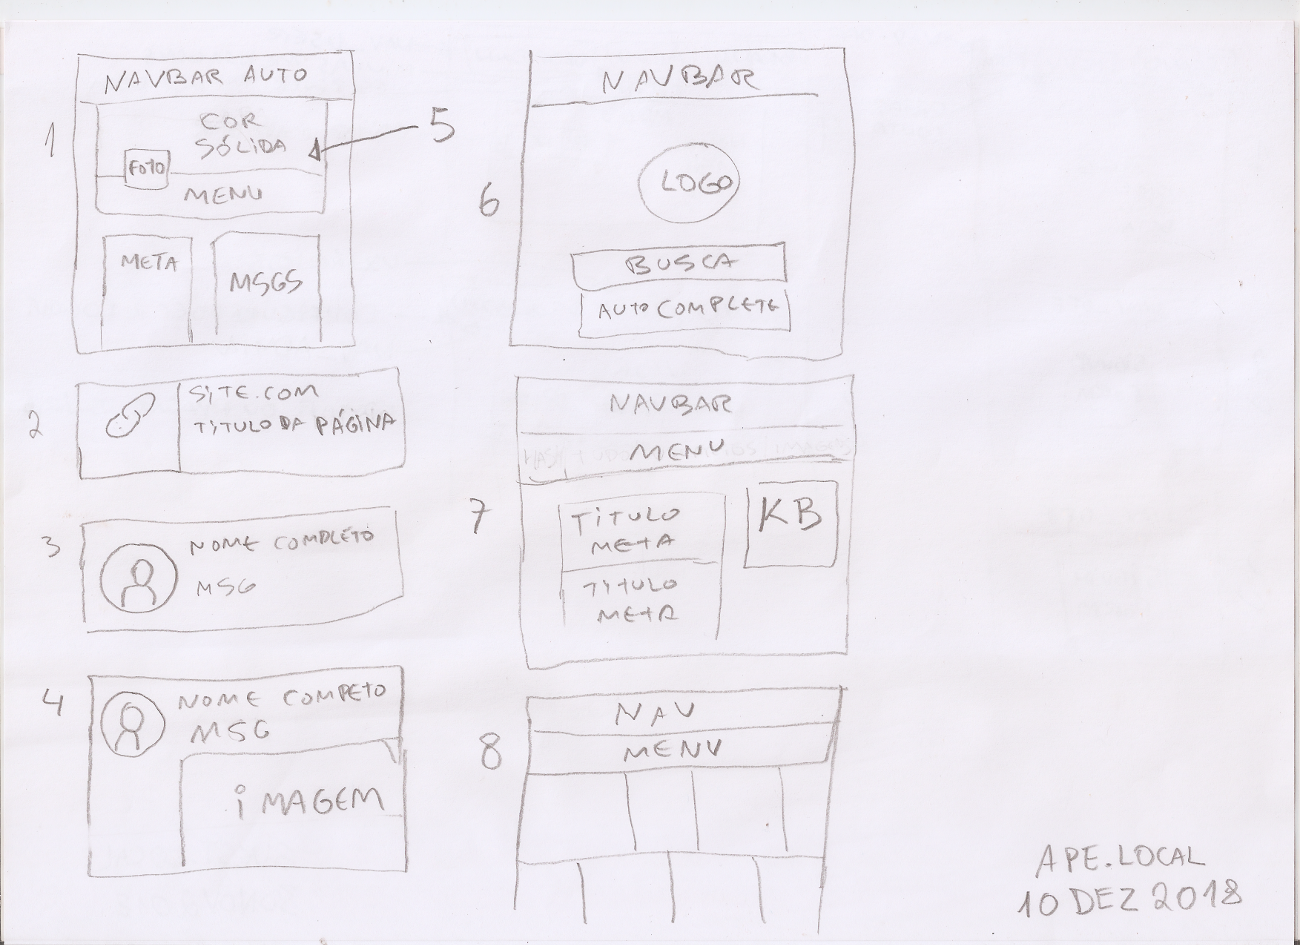 NAVBAR AUTO
1
COR
SÓLIDA
5
FOTO
MENU
META
MSGS
2
SITE.COM
TÍTULO DA PÁGINA
3
NOME COMPLETO
MSG
4
NOME COMPETO
MSG
IMAGEM
NAVBAR
6
LOGO
BUSCA
AUTOCOMPLETE
NAVBAR
MENU
7
TÍTULO
META
KB
TÍTULO
META
8
NAV
MENU
APE.LOCAL
10 DEZ 2018